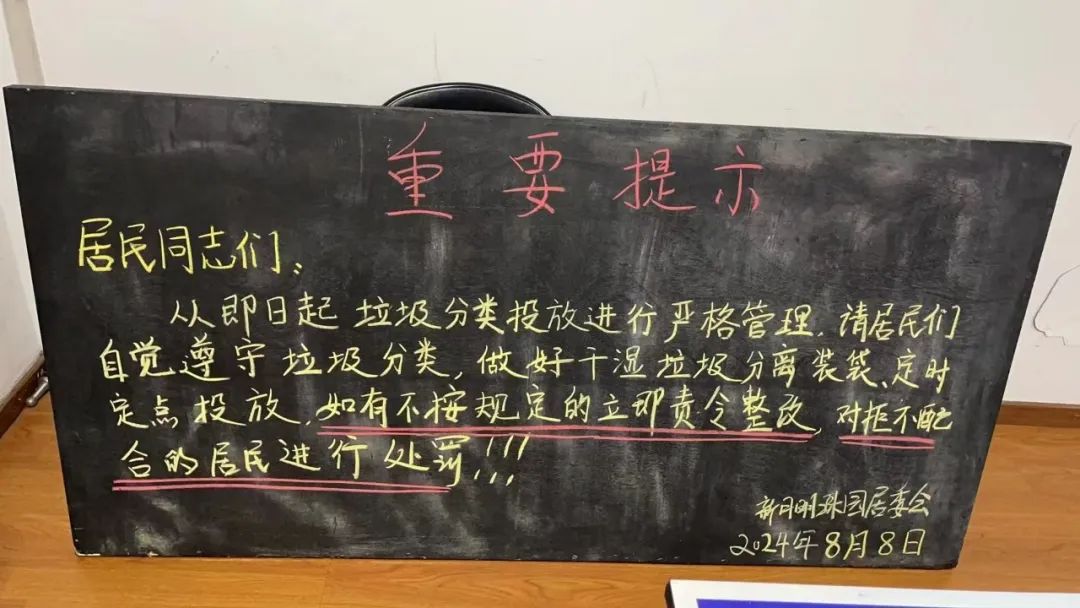 重要提示
居民同志们:
从即日起 垃圾分类投放进行严格管理.请居民们
自觉遵守垃圾分类,做好干湿垃圾分离装袋、定时
定点投放,如有不按规定的立即责令整改,对拒不配
合的居民进行处罚!!!
新月明珠园居委会
2024年8月8日